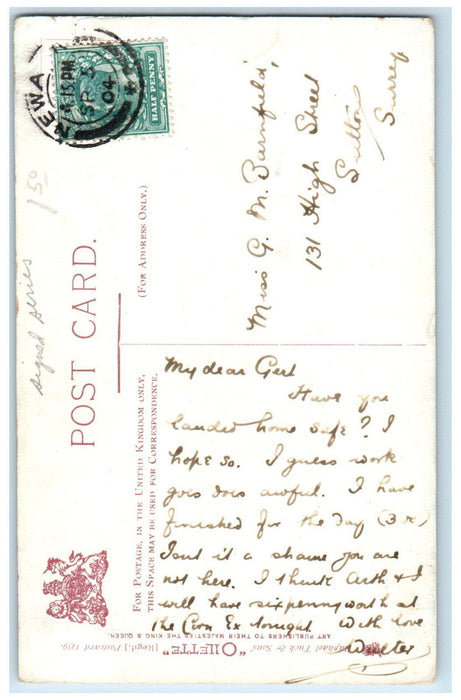 NEWA
4.15 PM
SP 3
04
HALF PENNY
1 50
signed series
POST CARD.
(FOR ADDRESS ONLY.)
FOR POSTAGE, IN THE UNITED KINGDOM ONLY,
THIS SPACE MAY BE USED FOR CORRESPONDENCE.
Miss G. M. Barnfield,
131 High Street
Sutton
Surrey
My dear Gert
Have you
landed home safe? I
hope so. I guess work
goes does awful. I have
finished for the day (3.
Isnt it a shame you are
not here. I think Arth & I
will have sixpennyworth at
the Corn Ex tonight With love
Walter
Raphael Tuck & Sons' "OILETTE" [Regd.] Postcard
ART PUBLISHERS TO THEIR MAJESTIES THE KING & QUEEN.